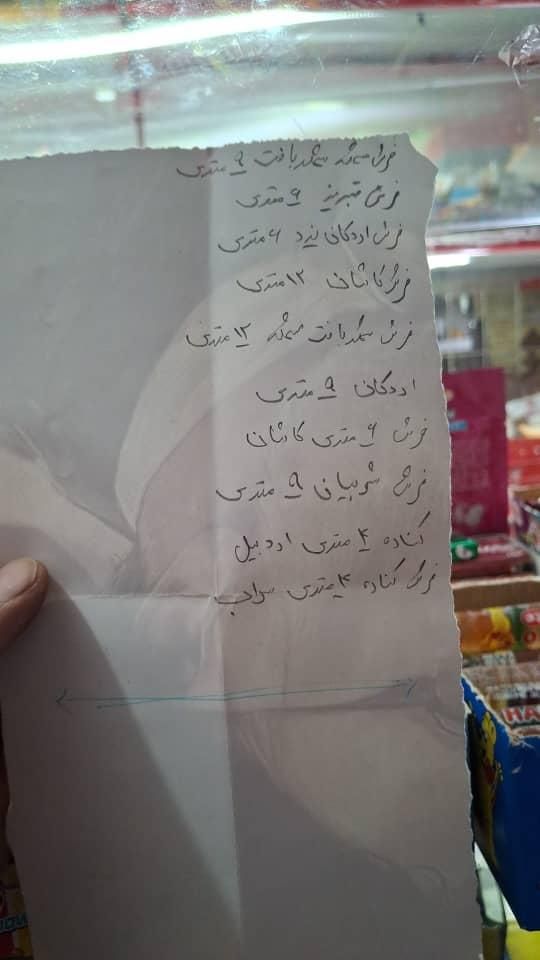 فرش مشهد بافت ۹ متری
فرش تبریز ۹ متری
فرش اردکانی یزد ۶ متری
فرش کاشان ۱۲ متری
فرش بافت ۱۲ متری
اردکانی ۹ متری
فرش ۶ متری کاشان
فرش شربیانی ۹ متری
کناره ۴ متری اردبیل
فرش کناره ۴ متری سراب
HA